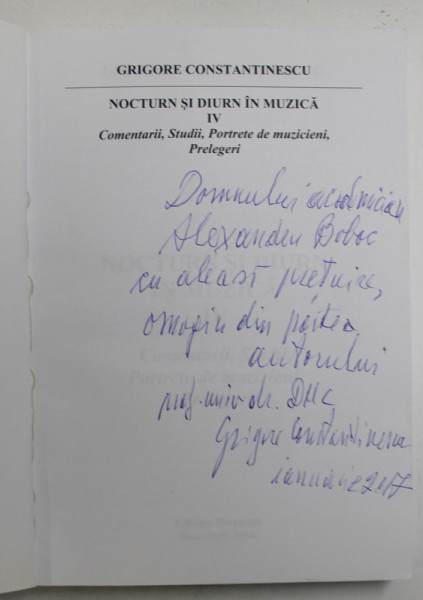 GRIGORE CONSTANTINESCU
NOCTURN ȘI DIURN ÎN MUZICĂ
IV
Comentarii, Studii, Portrete de muzicieni,
Prelegeri
Domnului academician
Alexandru Boboc
cu aleasă prețuire,
omagiu din partea
autorului
prof. univ. dr. DHC
Grigore Constantinescu
ianuarie 2017